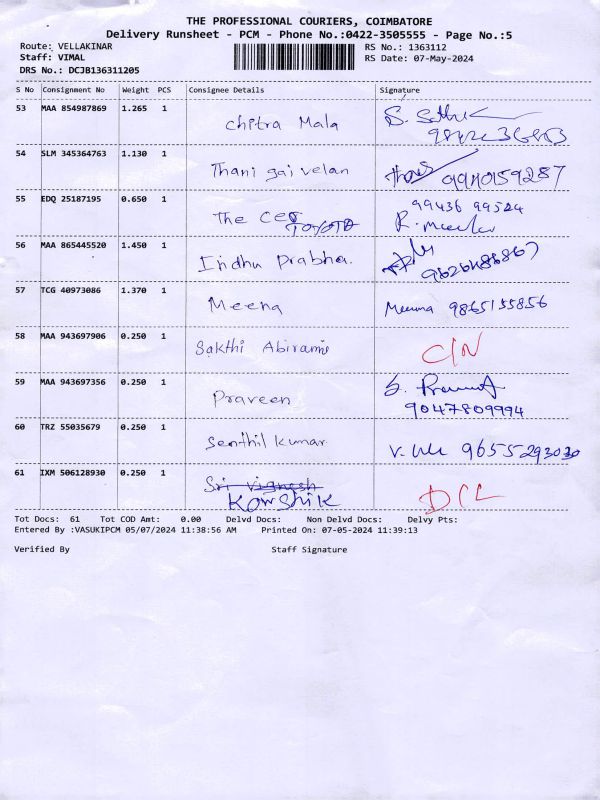 THE PROFESSIONAL COURIERS, COIMBATORE
Delivery Runsheet - PCM - Phone No.:0422-3505555 - Page No.:5
Route: VELLAKINAR RS No.: 1363112
Staff: VIMAL RS Date: 07-May-2024
DRS No.: DCJB136311205
S No Consignment No Weight PCS Consignee Details Signature
53 MAA 854987869 1.265 1 Chitra Mala
54 SLM 345364763 1.130 1 Thani gai velan 9940159287
55 EDQ 25187195 0.650 1 The CEO TOYOTA 99436 99524
R. Meela
56 MAA 865445520 1.450 1 Indhu Prabha.
57 TCG 40973086 1.370 1 Meena Meena 9865155856
58 MAA 943697906 0.250 1 Sakthi Abirami C/N
59 MAA 943697356 0.250 1 Praveen
9047809994
60 TRZ 55035679 0.250 1 Senthil kumar 9655293030
61 IXM 506128930 0.250 1 Sri Vignesh
Kowshik DCL
Tot Docs: 61 Tot COD Amt: 0.00 Delvd Docs: Non Delvd Docs: Delvy Pts:
Entered By :VASUKIPCM 05/07/2024 11:38:56 AM Printed On: 07-05-2024 11:39:13
Verified By Staff Signature